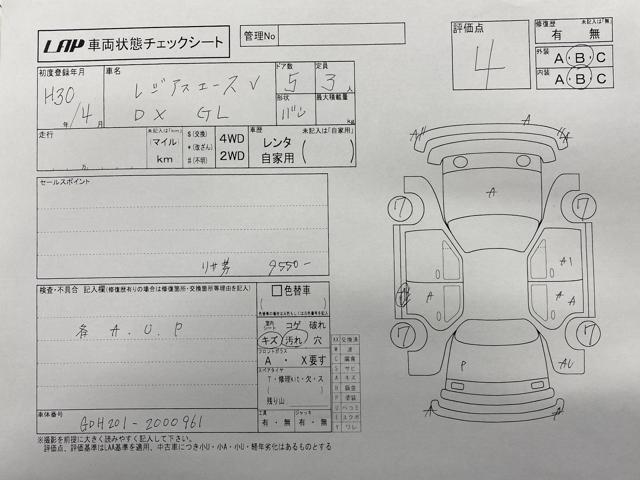 LAP 車両状態チェックシート
管理No
評価点
4
修復歴 未記入は「無」
有 無
外装 A B C
内装 A B C
初度登録年月
H30年/4月
車名
レジアスエース V
DX GL
ドア数
5
定員
3人
形状
バン
最大積載量
kg
走行
万
未記入は「km」
(マイル)
km
$(交換)
*(改ざん)
#(不明)
4WD
2WD
車歴 未記入は「自家用」
レンタ
自家用
セールスポイント
リサ券 9550-
検査・不具合 記入欄(修復歴有りの場合は修復箇所・交換箇所等理由を記入)
各 A.U.P
色替車
室内シート コゲ 破れ
キズ 汚れ 穴
フロントガラス
A ・ X要す
スペアタイヤ
T・修理kit・欠・ス
残り山
工具 ジャッキ
有・無 有・無
XX 交換済
W 波
C 腐食
S サビ
A キズ
P 塗装
U ヘコミ
Y ワレ
車体番号
GDH201-2000961
A
A A
A
7 7
A1
A A A A
7 7
P AU
A A
A
※撮影を前提に大きく読みやすく記入して下さい。
評価点、評価基準はLAA基準を適用、中古車につき小U・小A・小U・経年劣化はあるものとする